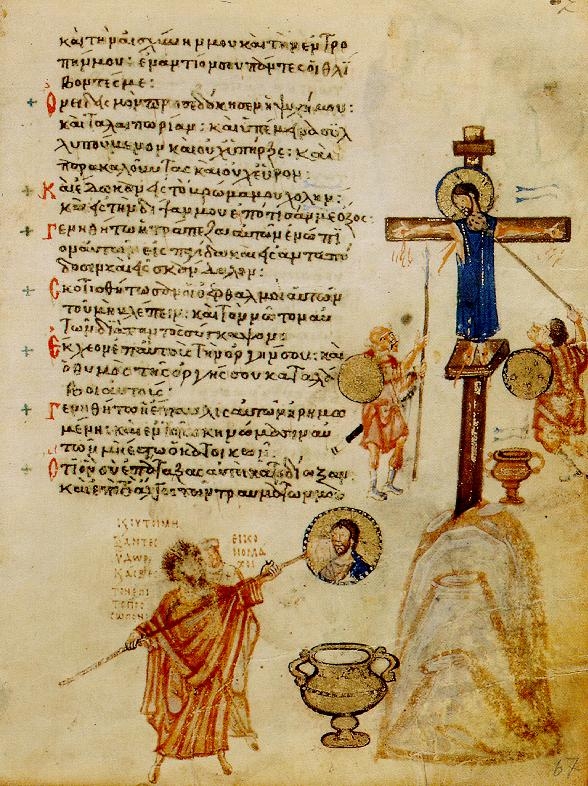 καὶ τὴν αἰσχύνην μου καὶ τὴν ἐντρο
πήν μου: ἐναντίον σου πάντες οἱ θλί
βοντές με:
Ὀνειδισμὸν προσεδόκησεν ἡ ψυχή μου:
καὶ ταλαιπωρίαν: καὶ ὑπέμεινα συλ
λυπούμενον καὶ οὐχ ὑπῆρξε: καὶ
παρακαλοῦντας καὶ οὐχ εὗρον:
Καὶ ἔδωκαν εἰς τὸ βρῶμα μου χολήν:
καὶ εἰς τὴν δίψαν μου ἐπότισάν με ὄξος:
Γενηθήτω ἡ τράπεζα αὐτῶν ἐνώπι
ον αὐτῶν εἰς παγίδα καὶ εἰς ἀνταπό
δοσιν καὶ εἰς σκάνδαλον:
Σκοτισθήτωσαν οἱ ὀφθαλμοὶ αὐτῶν
τοῦ μὴ βλέπειν: καὶ τὸν νῶτον αὐ
τῶν διὰ παντὸς σύγκαμψον:
Ἔκχεον ἐπ' αὐτοὺς τὴν ὀργήν σου: καὶ
ὁ θυμὸς τῆς ὀργῆς σου καταλά
βοι αὐτούς:
Γενηθήτω ἡ ἔπαυλις αὐτῶν ἠρημω
μένη: καὶ ἐν τοῖς σκηνώμασιν αὐ
τῶν μὴ ἔστω ὁ κατοικῶν:
Ὅτι ὃν σὺ ἐπάταξας αὐτοὶ κατεδίωξαν:
καὶ ἐπὶ τὸ ἄλγος τῶν τραυμάτων μου
ΕΙΚΟ
ΝΟΜΑ
ΧΟΙ
ΥΔΩΡ
67